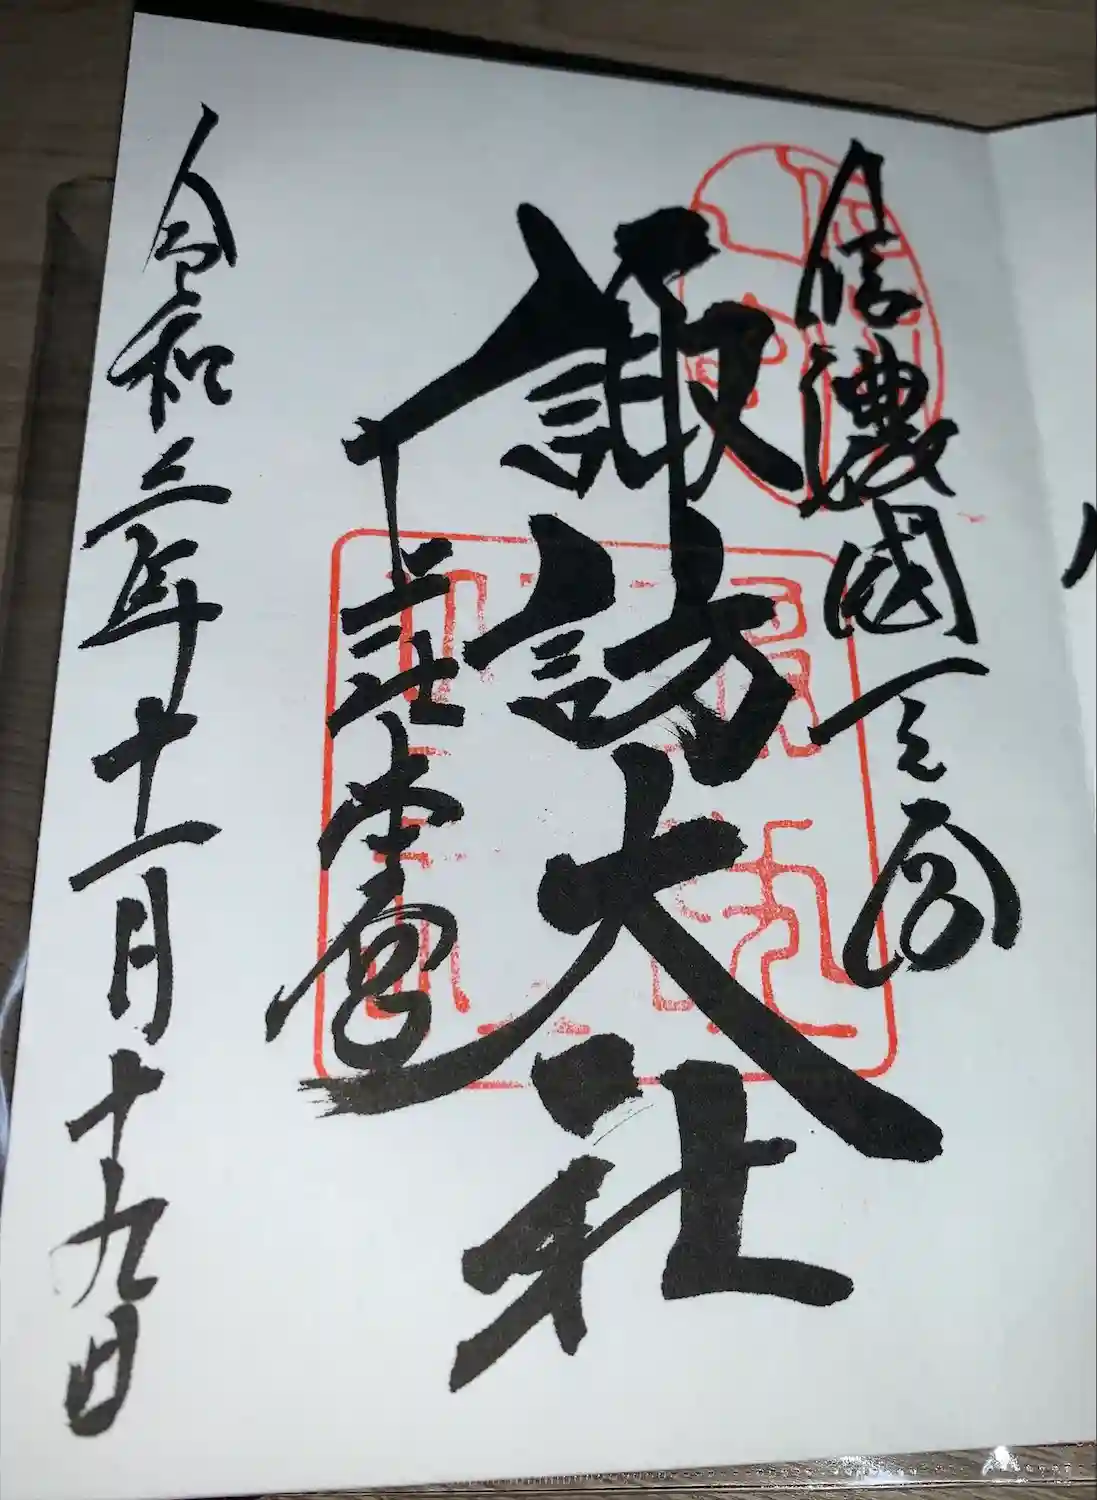 信濃國一之宮
諏訪大社
上社本宮
令和三年十一月十九日